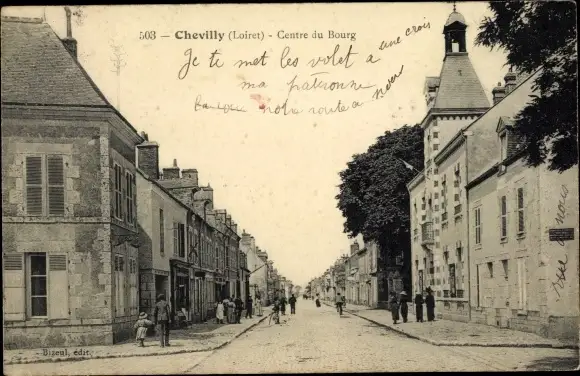 503 — Chevilly (Loiret) - Centre du Bourg
Je te met les volet a une croix
ma patronne
notre route a noir
vue de nous
Bizeul, édit.